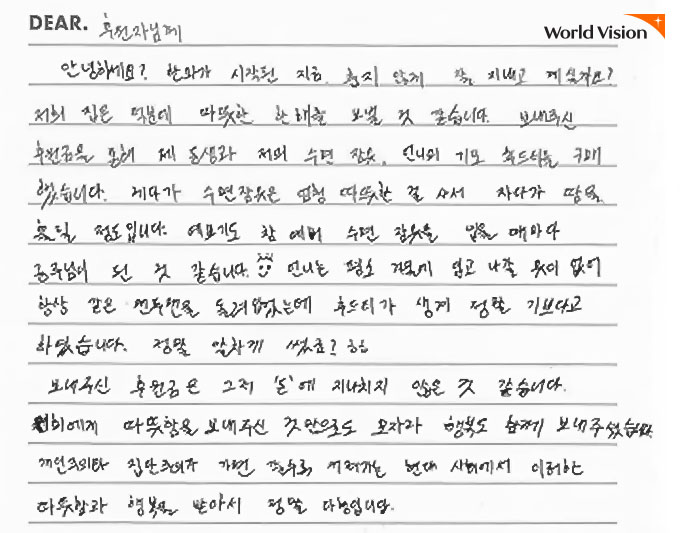 DEAR. 후원자님께
World Vision
안녕하세요? 한파가 시작된 지금, 춥지 않게 잘 지내고 계실까요?
저희 집은 덕분에 따뜻한 한 해를 보낼 것 같습니다. 보내주신
후원금을 통해 제 동생과 저의 수면 잠옷, 언니의 기모 후드티를 구매
했습니다. 게다가 수면잠옷은 엄청 따뜻한 걸 사서 자다가 땀을
흘릴 정도입니다. 예쁘기도 참 예뻐 수면 잠옷을 입을 때마다
공주님이 된 것 같습니다. 언니는 평소 겨울에 입고 나갈 옷이 없어
항상 같은 맨투맨을 돌려입었는데 후드티가 생겨 정말 기쁘다고
하였습니다. 정말 알차게 썼죠? ㅎㅎ
보내주신 후원금은 그저 '돈'에 지나치지 않은 것 같습니다.
저희에게 따뜻함을 보내주신 것만으로도 모자라 행복도 함께 보내주셨습니다.
개인주의와 집단주의가 가면 갈수록 커져가는 현대 사회에서 이러한
따뜻함과 행복을 받아서 정말 다행입니다.